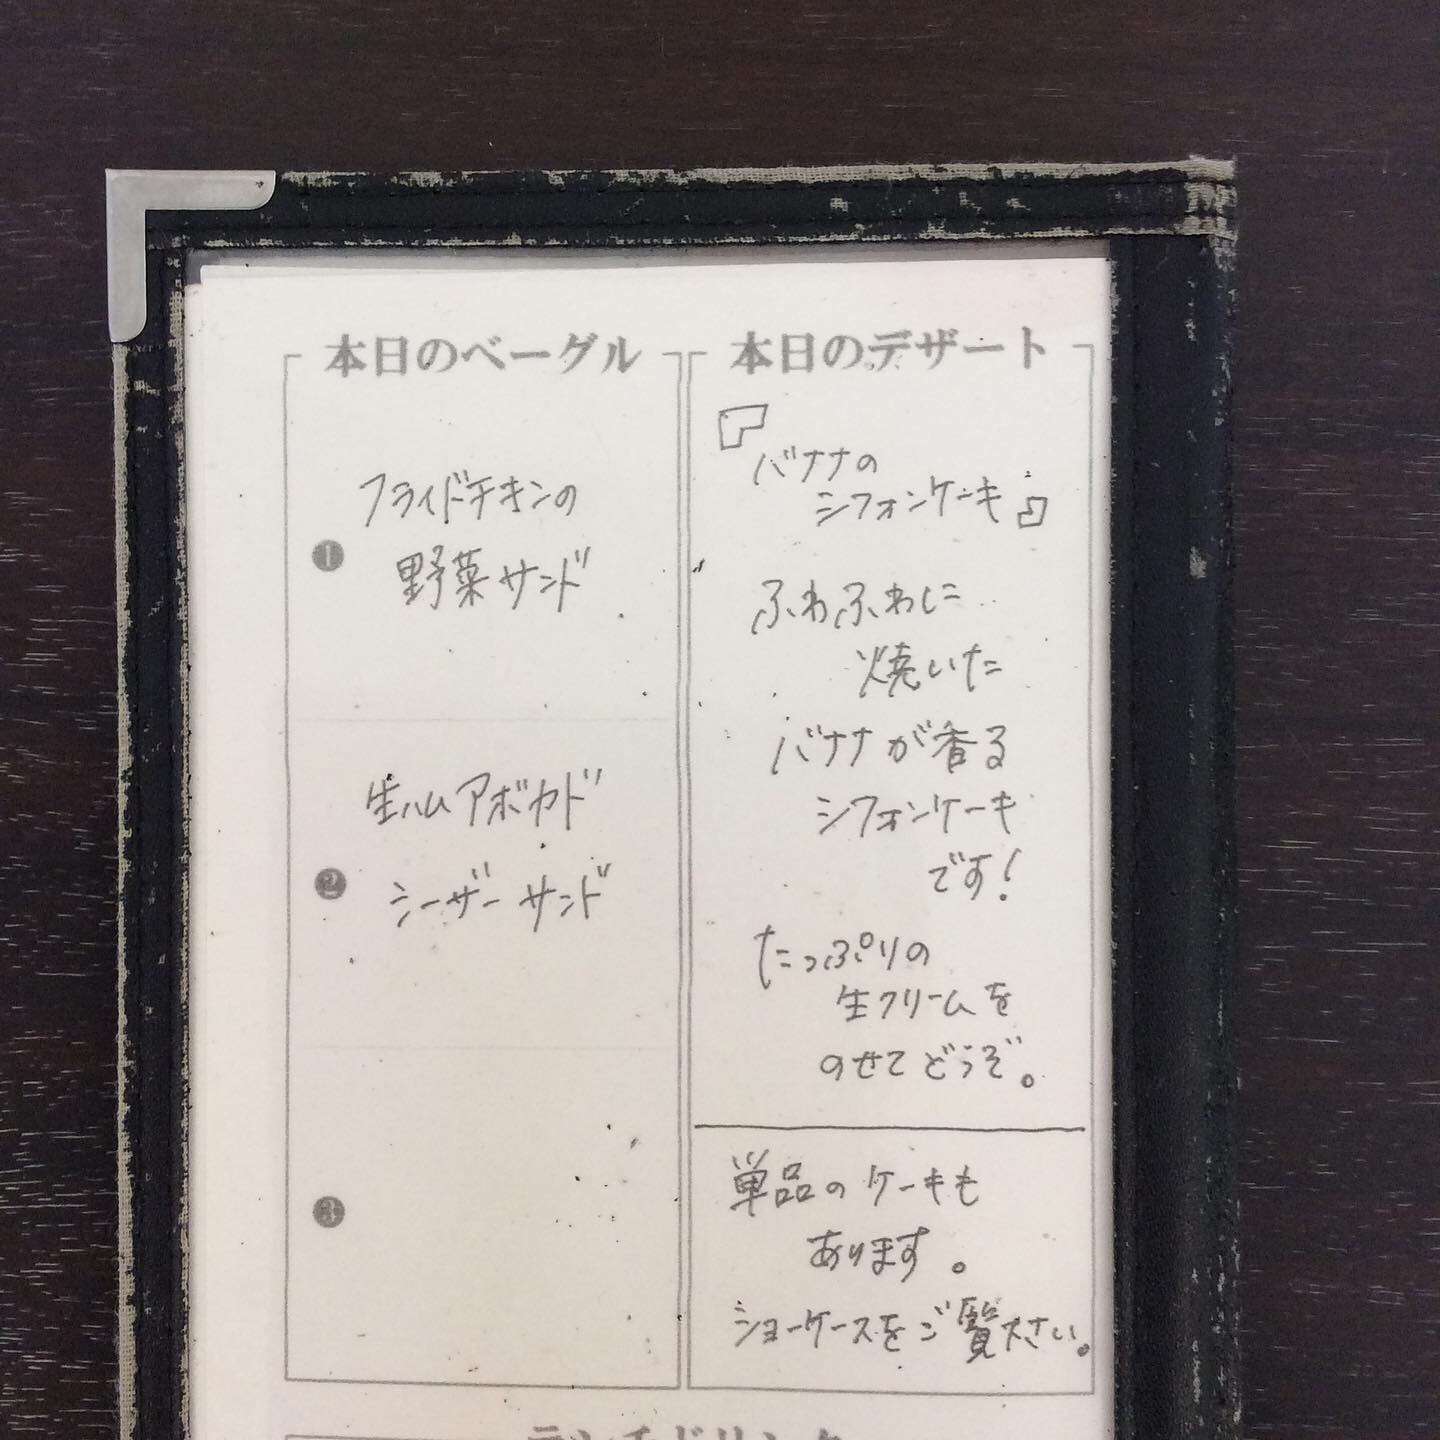 本日のベーグル
❶
フライドチキンの
野菜サンド
❷
生ハムアボカド
シーザーサンド
❸
本日のデザート
「バナナの
シフォンケーキ」
ふわふわに
焼いた
バナナが香る
シフォンケーキ
です!
たっぷりの
生クリームを
のせてどうぞ。
単品のケーキも
あります。
ショーケースをご覧下さい。
ランチドリンク